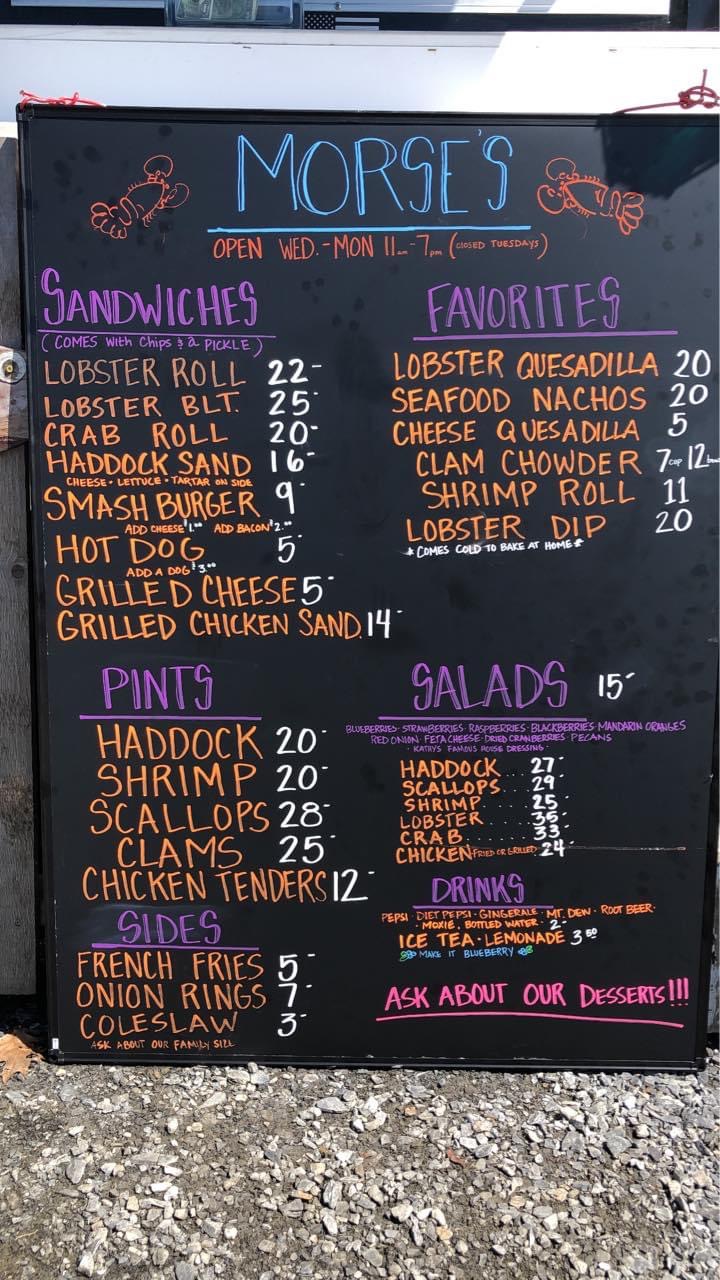 MORSE'S
OPEN WED.-MON 11am-7pm (CLOSED TUESDAYS)
SANDWICHES
(COMES with Chips & a PICKLE)
LOBSTER ROLL 22-
LOBSTER BLT. 25-
CRAB ROLL 20-
HADDOCK SAND 16-
CHEESE • LETTUCE • TARTAR ON SIDE
SMASH BURGER 9-
ADD CHEESE $1.00 ADD BACON $2.00
HOT DOG 5-
ADD A DOG $3.00
GRILLED CHEESE 5-
GRILLED CHICKEN SAND. 14-
FAVORITES
LOBSTER QUESADILLA 20
SEAFOOD NACHOS 20
CHEESE QUESADILLA 5
CLAM CHOWDER 7cup 12
SHRIMP ROLL 11
LOBSTER DIP 20
*COMES COLD TO BAKE AT HOME*
PINTS
HADDOCK 20-
SHRIMP 20-
SCALLOPS 28-
CLAMS 25-
CHICKEN TENDERS 12-
SIDES
FRENCH FRIES 5-
ONION RINGS 7-
COLESLAW 3-
ASK ABOUT OUR FAMILY SIZE
SALADS 15-
BLUEBERRIES • STRAWBERRIES • RASPBERRIES • BLACKBERRIES • MANDARIN ORANGES
RED ONION • FETA CHEESE • DRIED CRANBERRIES • PECANS
• KATHYS FAMOUS HOUSE DRESSING •
HADDOCK... 27-
SCALLOPS... 29-
SHRIMP..... 25-
LOBSTER.... 35-
CRAB....... 33-
CHICKEN FRIED OR GRILLED 24-
DRINKS
PEPSI • DIET PEPSI • GINGERALE • MT. DEW • ROOT BEER •
• MOXIE, BOTTLED WATER • 2-
ICE TEA • LEMONADE 3 50
MAKE IT BLUEBERRY
ASK ABOUT OUR DESSERTS!!!